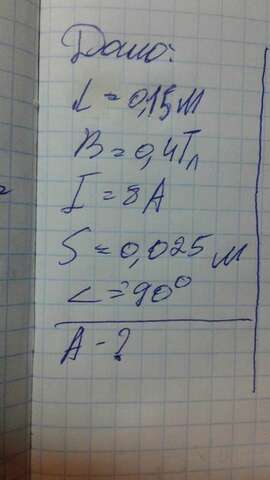 Дано:
L = 0,15 м
B = 0,4 Тл
I = 8 А
S = 0,025 м
∠ = 90°
A - ?